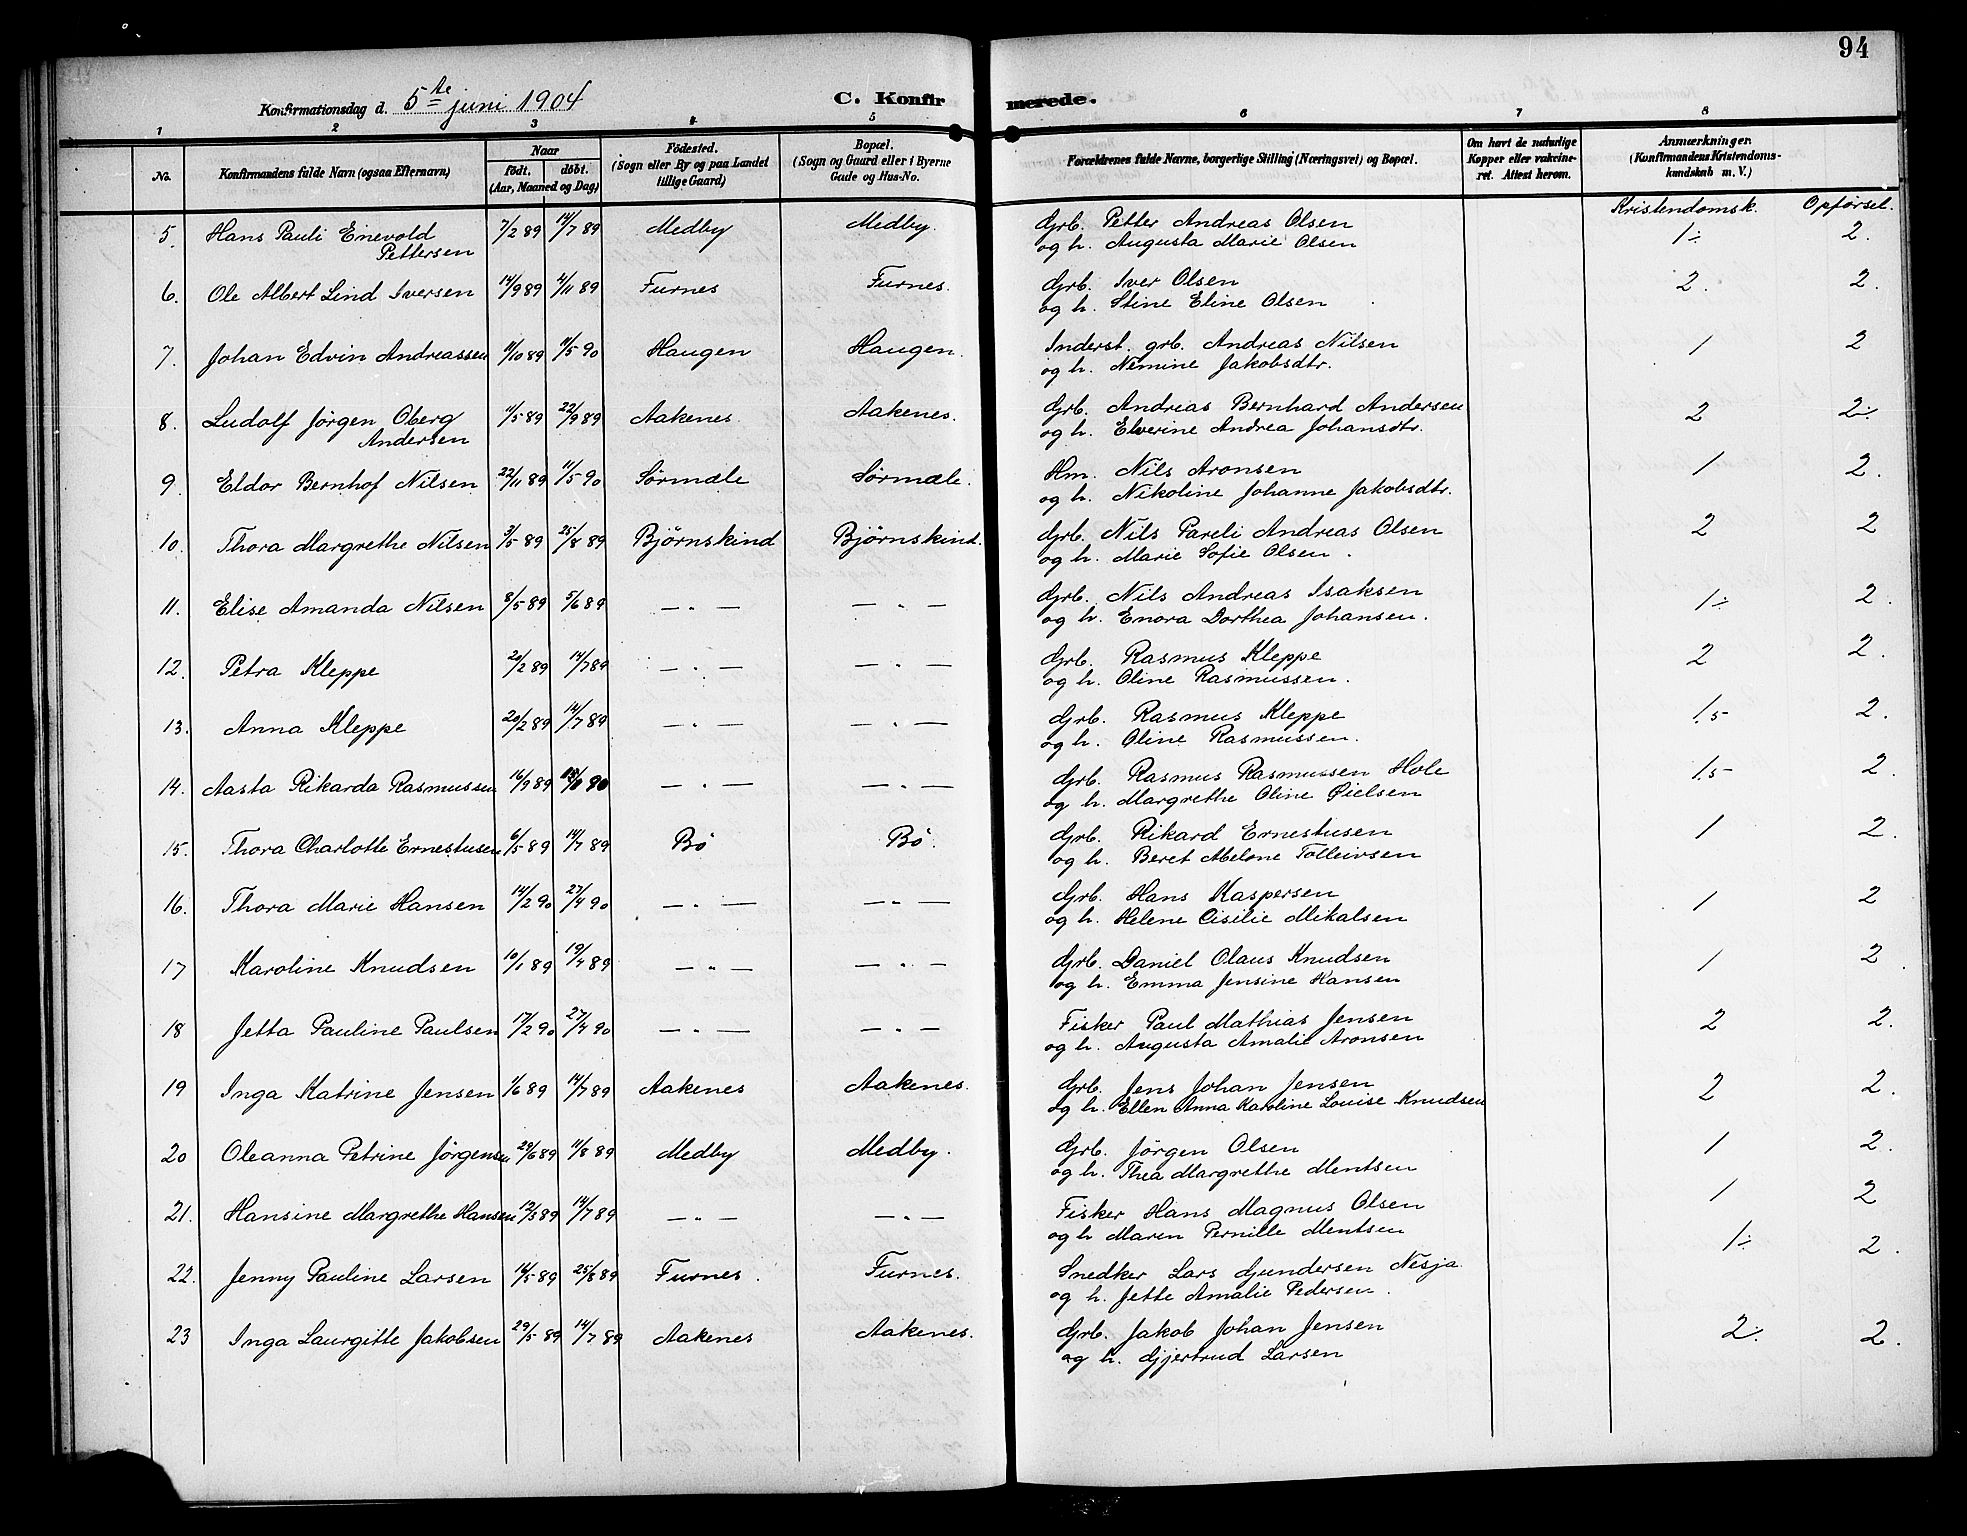 94
Konfirmationsdag d. 5te juni 1904
C. Konfirmerede.
1 2 3 4 5 6 7 8
No.
Konfirmandens fulde Navn (ogsaa Efternavn)
Naar
födt. döbt.
(Aar, Maaned og Dag)
Födested.
(Sogn eller By og paa Landet
tillige Gaard)
Bopæl.
(Sogn og Gaard eller i Byerne
Gade og Hus-No.
Forældrenes fulde Navne, borgerlige Stilling (Næringsvei) og Bopæl.
Om havt de naturlige
Kopper eller vakcine-
ret. Attest herom.
Anmærkninger
(Konfirmandens Kristendoms-
kundskab m. V.)
Kristendomsk. Opförsel.
5. Hans Pauli Einevold 7/2 89 14/7 89 Medby Medby. Grb. Petter Andreas Olsen 1÷ 2.
Pettersen og h. Augusta Marie Olsen
6. Ole Albert Lind Iversen 14/9 89 4/11 89 Furnes Furnes. Grb. Iver Olsen 2. 2.
og h. Stine Eline Olsen
7. Johan Edvin Andreassen 11/10 89 11/5 90 Haugen Haugen. Inderst. grb. Andreas Nilsen 1 2
og h. Nemine Jakobsdtr.
8. Ludolf Jörgen Oberg 11/5 89 22/9 89 Aakenes. Aakenes. Grb. Andreas Bernhard Andersen 2 2÷
Andersen og h. Elverine Andrea Johansdtr.
9. Eldor Bernhof Nilsen 22/11 89 11/5 90 Sörmæle Sörmæle. Hm. Nils Aronsen 1 2.
og h. Nikoline Johanne Jakobsdtr.
10. Thora Margrethe Nilsen 3/5 89 25/8 89 Björnskind Björnskind. Grb. Nils Pareli Andreas Olsen 2 2
og h. Marie Sofie Olsen.
11. Elise Amanda Nilsen 8/5 89 5/6 89 — " — — " — Grb. Nils Andreas Isaksen 1÷ 2.
og h. Enora Dorthea Johansen.
12. Petra Kleppe 20/2 89 14/7 89 — " — — " — Grb. Rasmus Kleppe 2 2.
og h. Oline Rasmussen.
13. Anna Kleppe 20/2 89 14/7 89 — " — — " — Grb. Rasmus Kleppe 1.5 2.
og h. Oline Rasmussen.
14. Aasta Rikarda Rasmussen 16/9 89 — " — — " — Grb. Rasmus Rasmussen Hole 1.5 2.
og h. Margrethe Oline Öielsen
15. Thora Charlotte Ernestusen 6/5 89 14/7 89 Bö Bö. Grb. Rikard Ernestusen 1 2.
og h. Beret Melone Tolleivsen
16. Thora Marie Hansen 14/2 90 27/4 90 — " — — " — Grb. Hans Kaspersen 1 2
og h. Helene Cisilie Mikalsen
17 Karoline Knudsen 10/1 89 19/4 89 — " — — " — Grb. Daniel Olaus Knudsen 1 2.
og h. Emma Jensine Hansen
18 Jetta Pauline Paulsen 17/2 90 27/4 90 — " — — " — Fisker Paul Mathias Jensen 2 2.
og h. Augusta Amalie Aronsen
19 Inga Katrine Jensen 1/6 89 14/7 89 Aakenes Aakenes. Grb. Jens Johan Jensen 2 2.
og h. Ellen Anna Karoline Louise Knudsen
20 Oleanna Petrine Jörgensen 29/6 89 11/8 89 Medby Medby. Grb. Jörgen Olsen 1 2.
og h. Thea Margrethe Mentsen
21. Hansine Margrethe Hansen 12/3 89 14/7 89 — " — — " — Fisker Hans Magnus Olsen 1 2
og h Maren Pernille Mentsen
22. Jenny Pauline Larsen 16/5 89 25/8 89 Furnes. Furnes. Snedker Lars Gundersen Nesja 1÷ 2.
og h. Jette Amalie Pedersen.
23 Inga Laurgitte Jakobsen 29/5 89 14/7 89 Aakenes Aakenes. Grb. Jakob Johan Jensen 2. 2.
og h. Gjjertrud Larsen